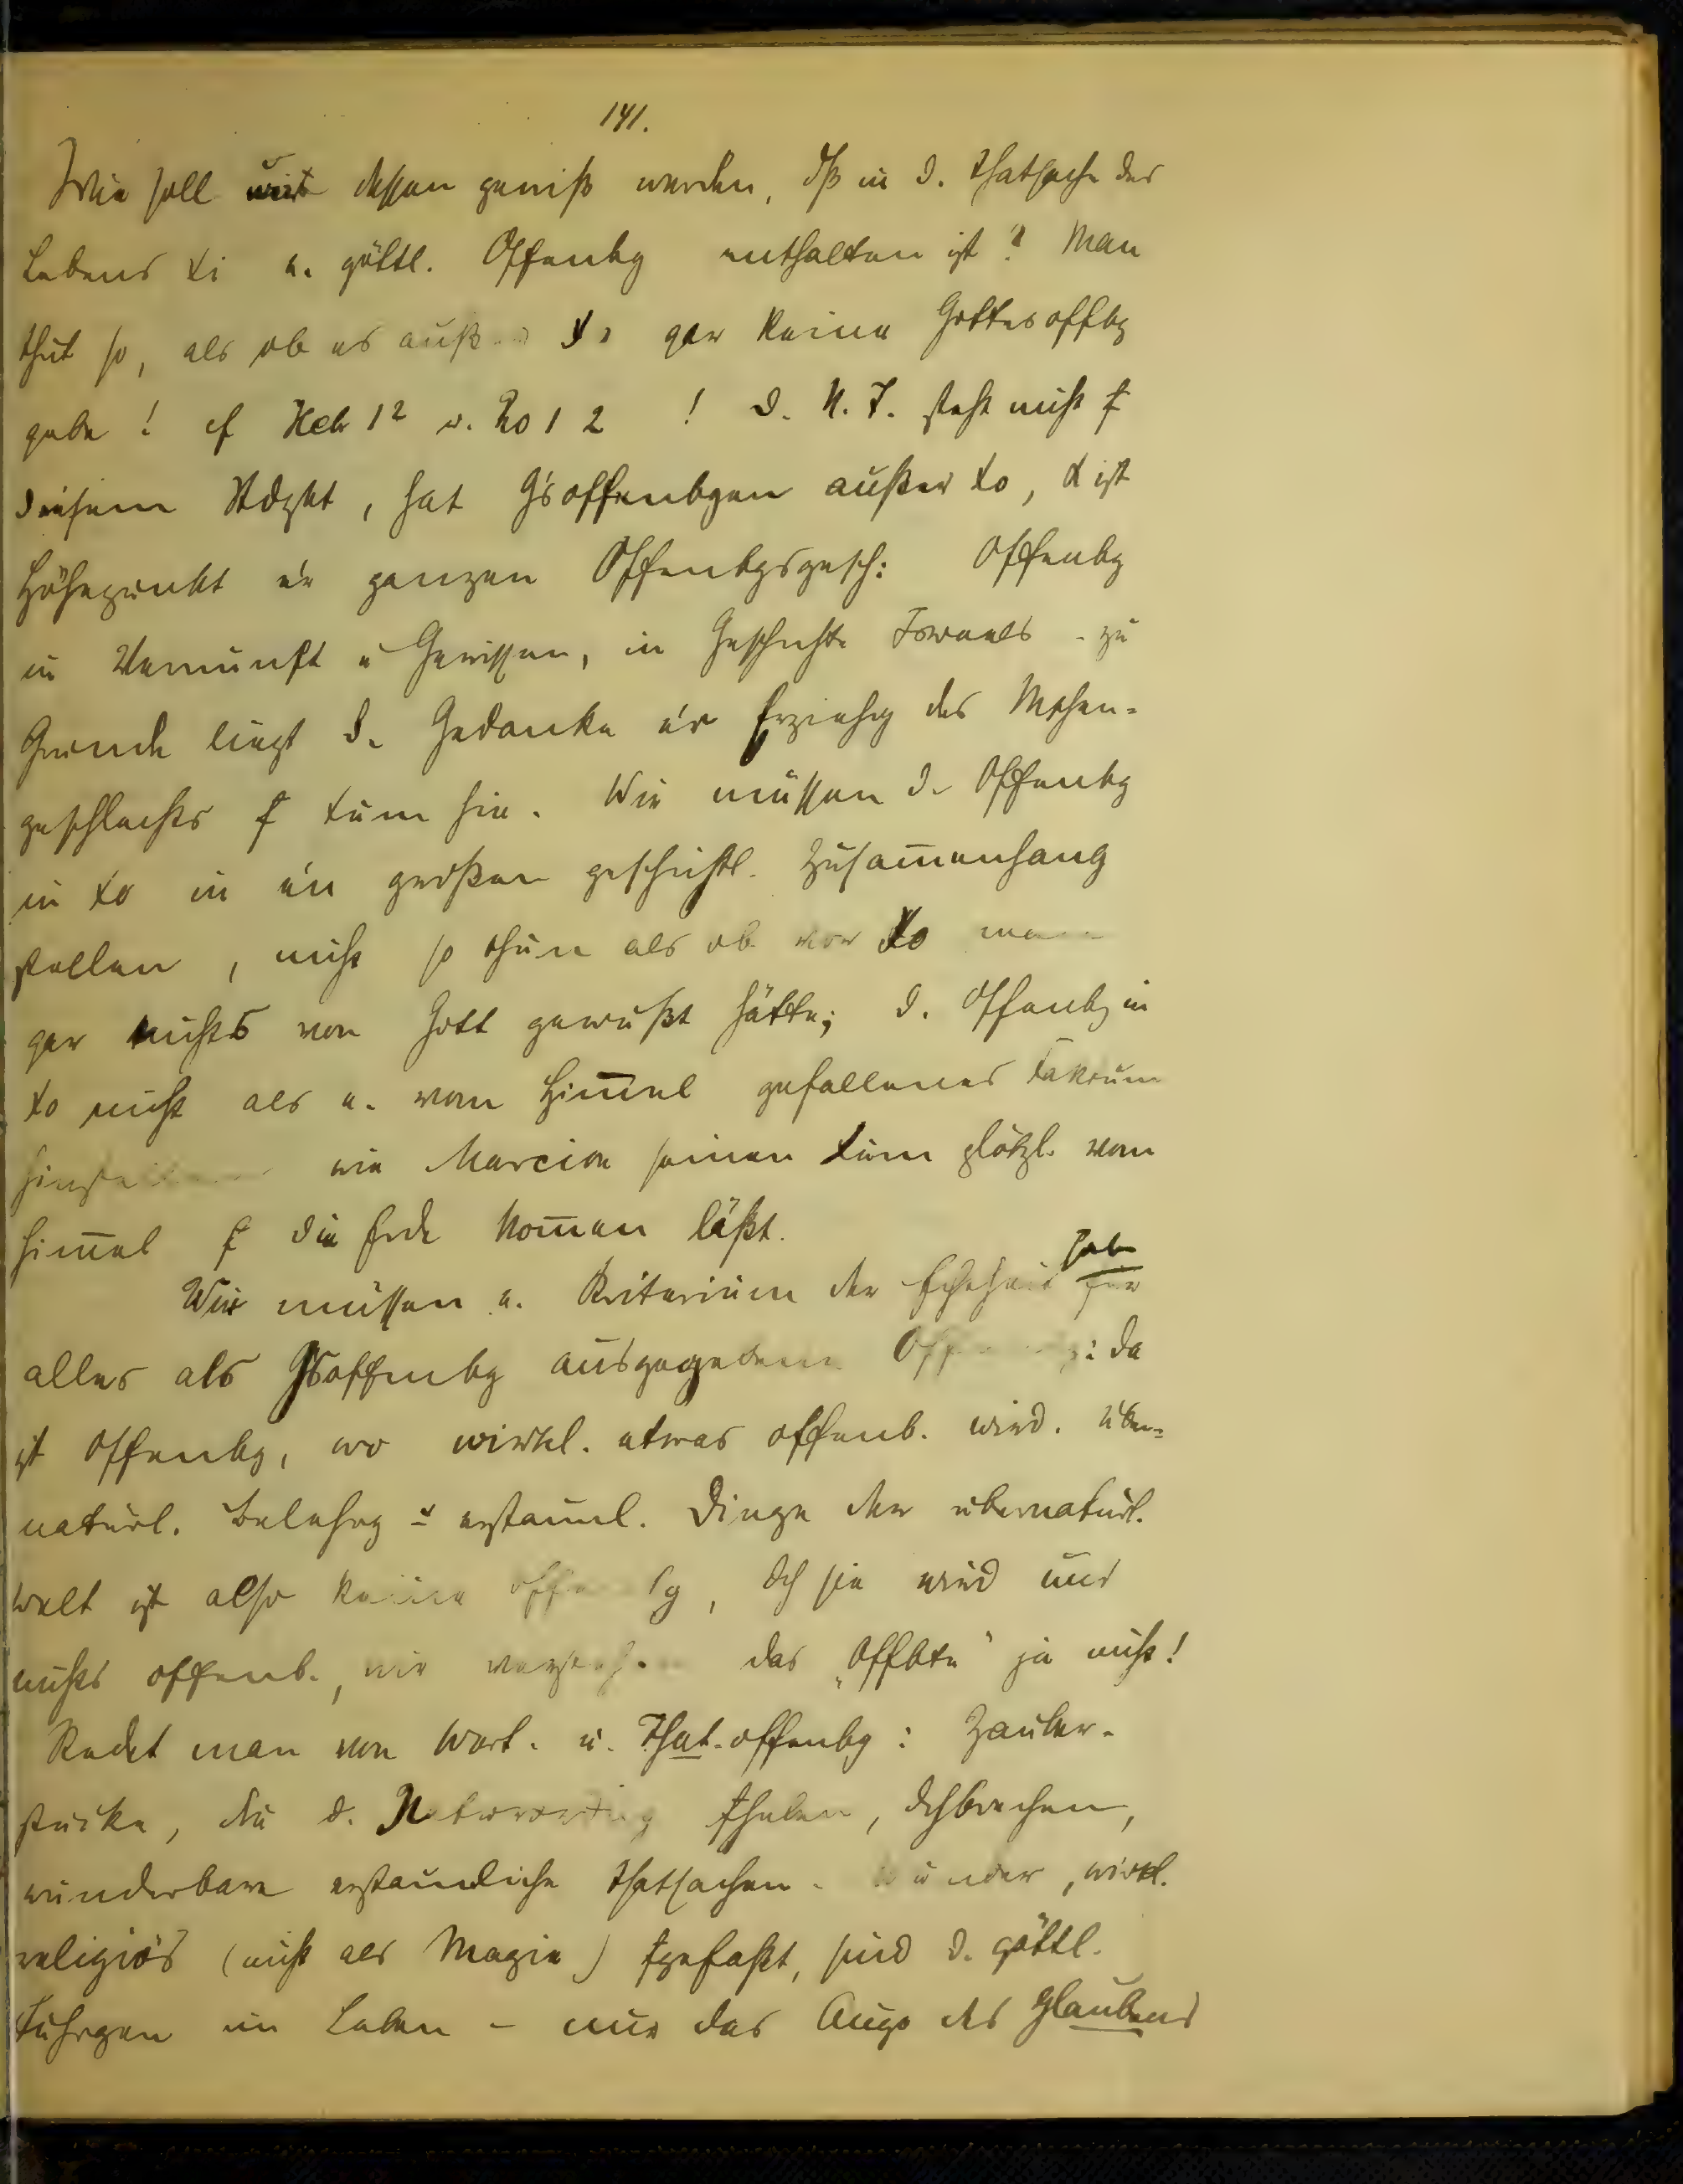 141.
Wie soll wir dessen gewiß werden, dß in d. Thatsache des
Lebens Xi e. göttl. Offenbg enthalten ist? Man
thut so, als ob es auß Xo gar keine Gottesoffbg
gebe! cf Heb 1² u. Ro 1 2 ! D. N. T. steht nicht f
diesem Stdpkt, hat G's offenbgen außer Xo, X ist
Höhepunkt e'r ganzen Offenbgsgesch: Offenbg
in Vernunft u Gewissen, in Geschichte Israels - zu
Grunde liegt d. Gedanke e'r Erziehg des Mschen-
geschlechts f Xum hin. Wir müssen d. Offenbg
in Xo in e'n großen geschichtl. Zusam̄enhang
stellen, nicht so thun als ob vor Xo man
gar nichts von Gott gewußt hätte; d. Offenbg in
Xo nicht als e. vom Him̄el gefallenes Faktum
hinstellen wie Marcion seinen Xum plötzl. vom
Him̄el f die Erde kom̄en läßt.
Wir müssen e. Kriterium der Echtheit für habn
alles als Gsoffenbg ausgegebene Off: da
ist Offenbg, wo wirkl. etwas offenb. wird. Über-
natürl. Belehrg erstaunl. Dinge der übernatürl.
Welt ist also keine Offenbg, dch sie wird uns
nichts offenb., wir verstehen das „Offbte" ja nicht!
Redet man von Wort- u. That-offenbg: Zauber-
stücke, die d. Naturordng fheben, dchbrechen,
wunderbare erstaunliche Thatsachen - Wunder, wirkl.
religiös (nicht als Magie) fgefaßt, sind d. göttl.
Führgen im Leben - nur das Auge des Glaubens